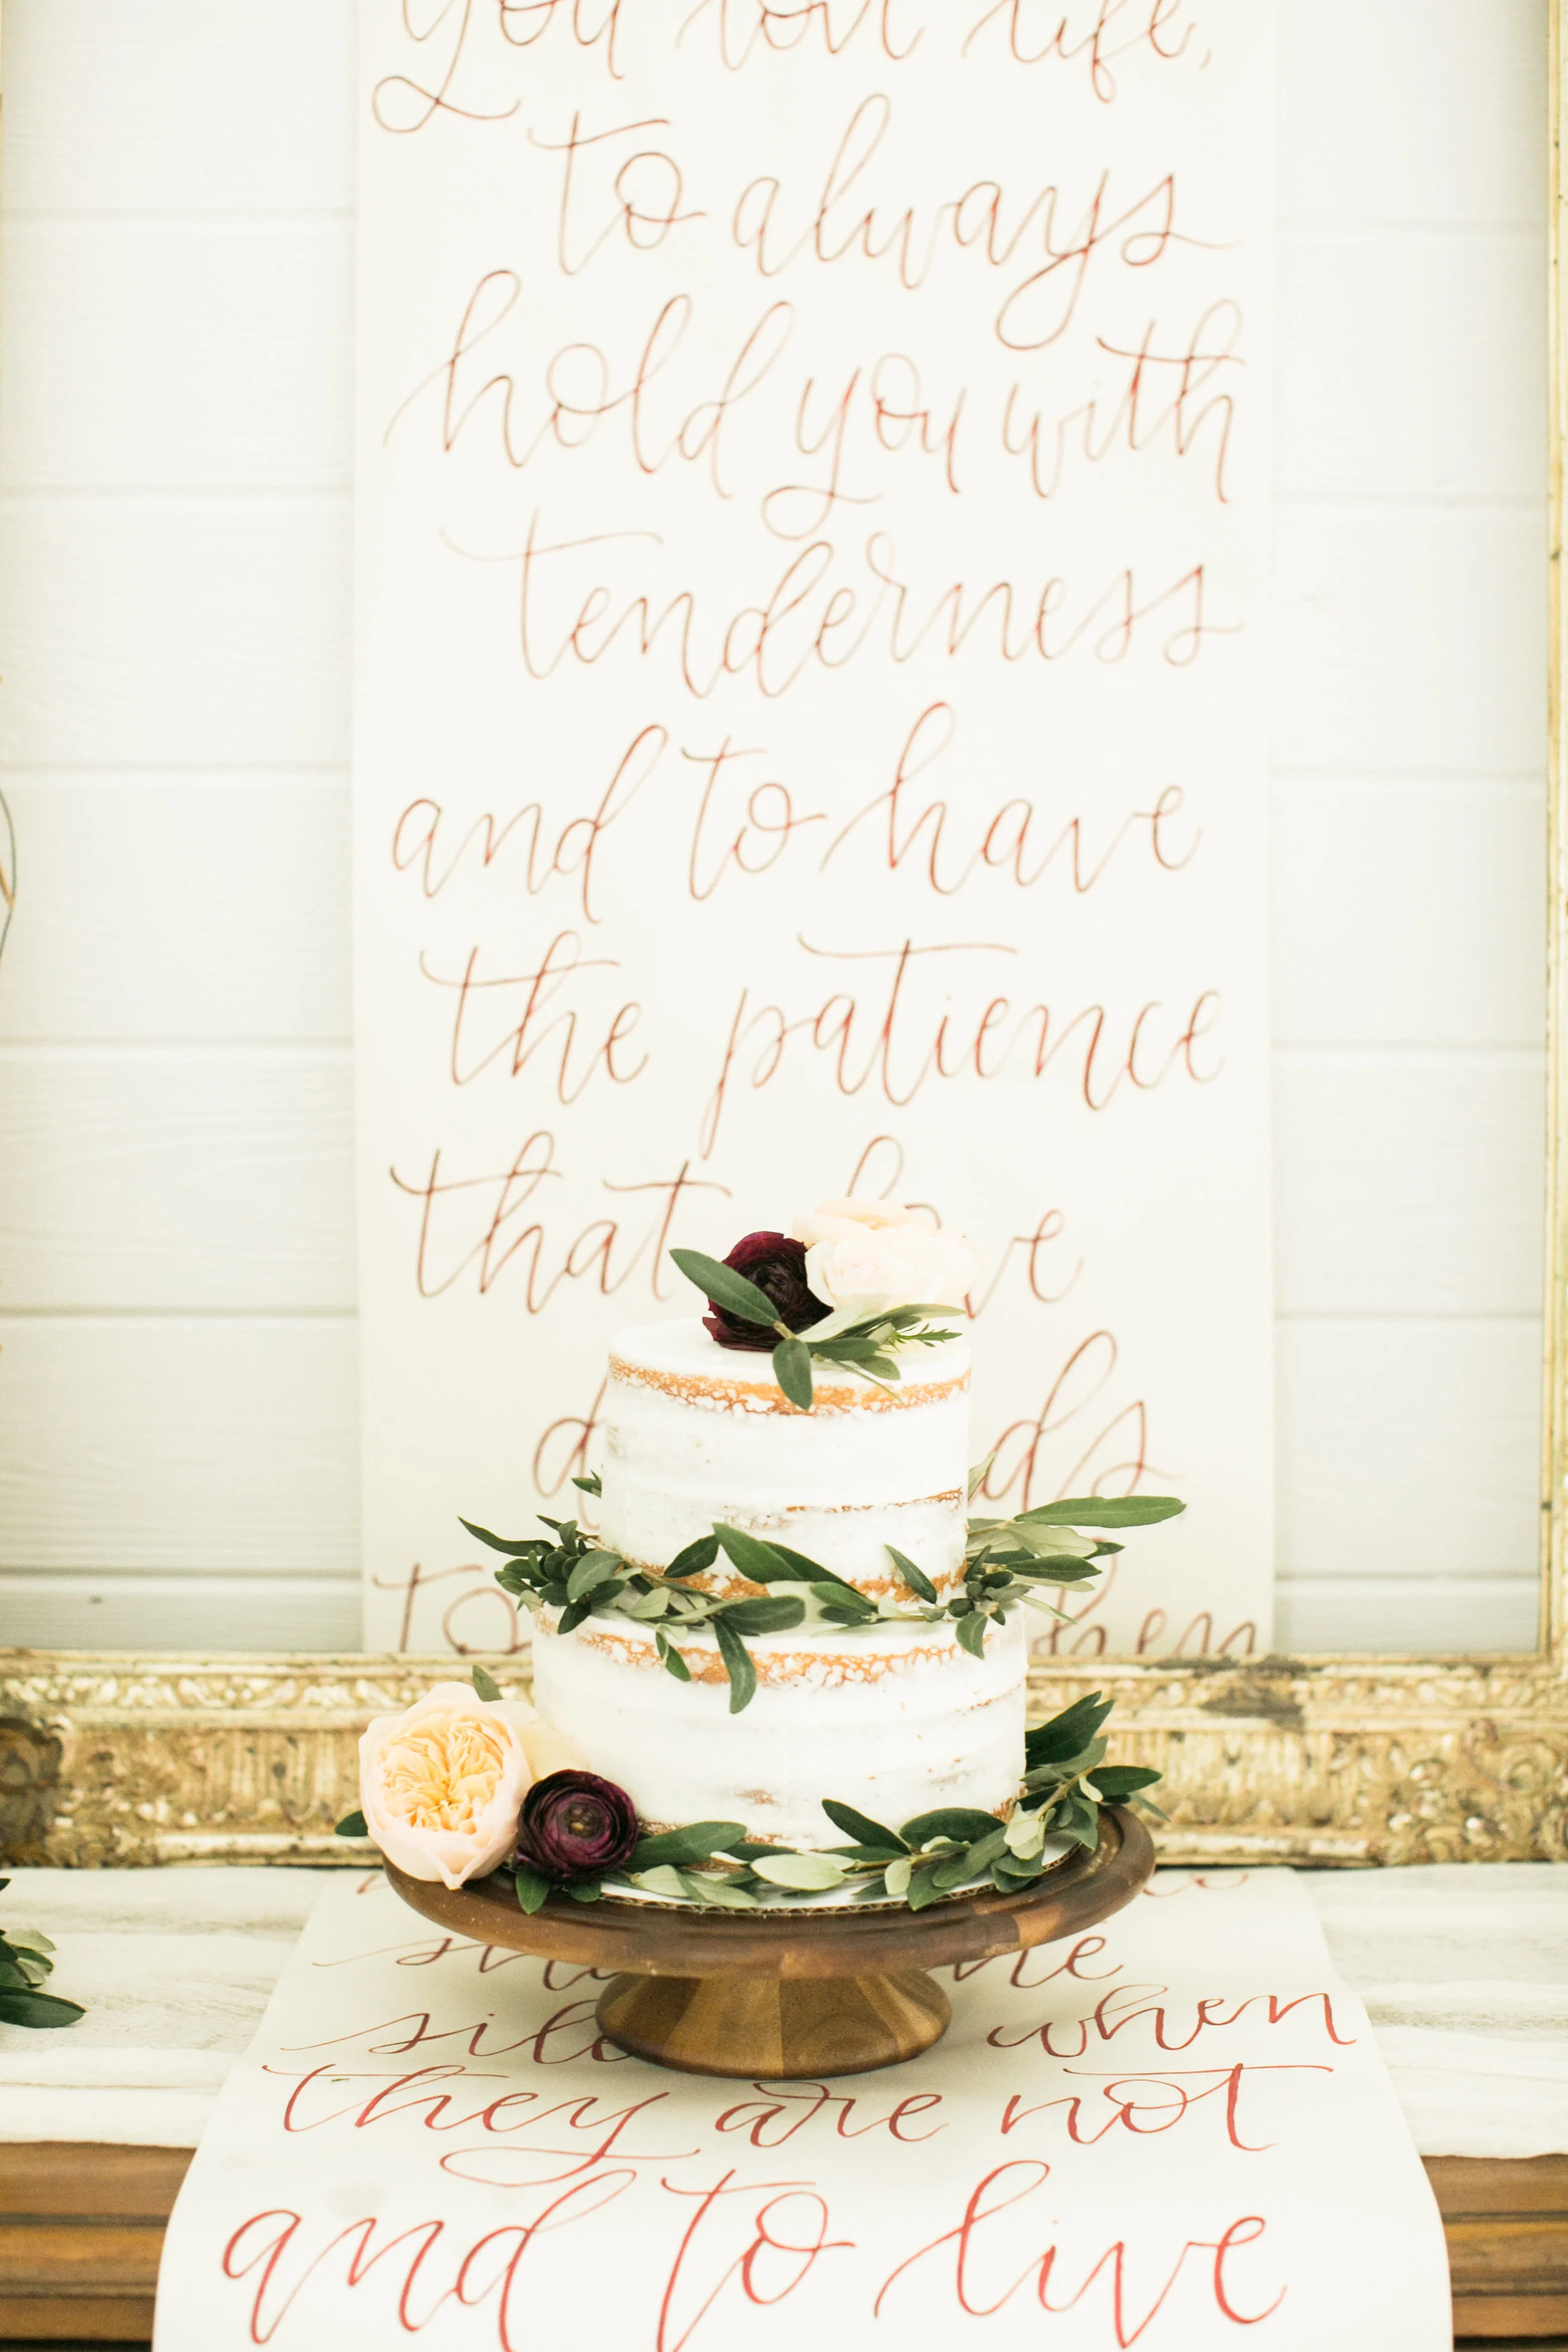 you love life,
to always
hold you with
tenderness
and to have
the patience
that
to
when
they are not
and to live